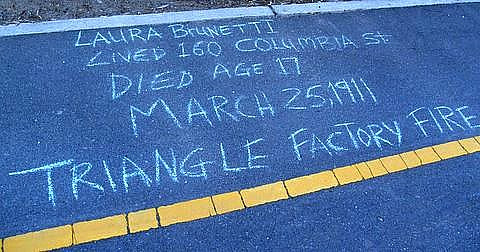 LAURA BRUNETTI
LIVED 160 COLUMBIA St
DIED AGE 17
MARCH 25, 1911
TRIANGLE FACTORY FIRE